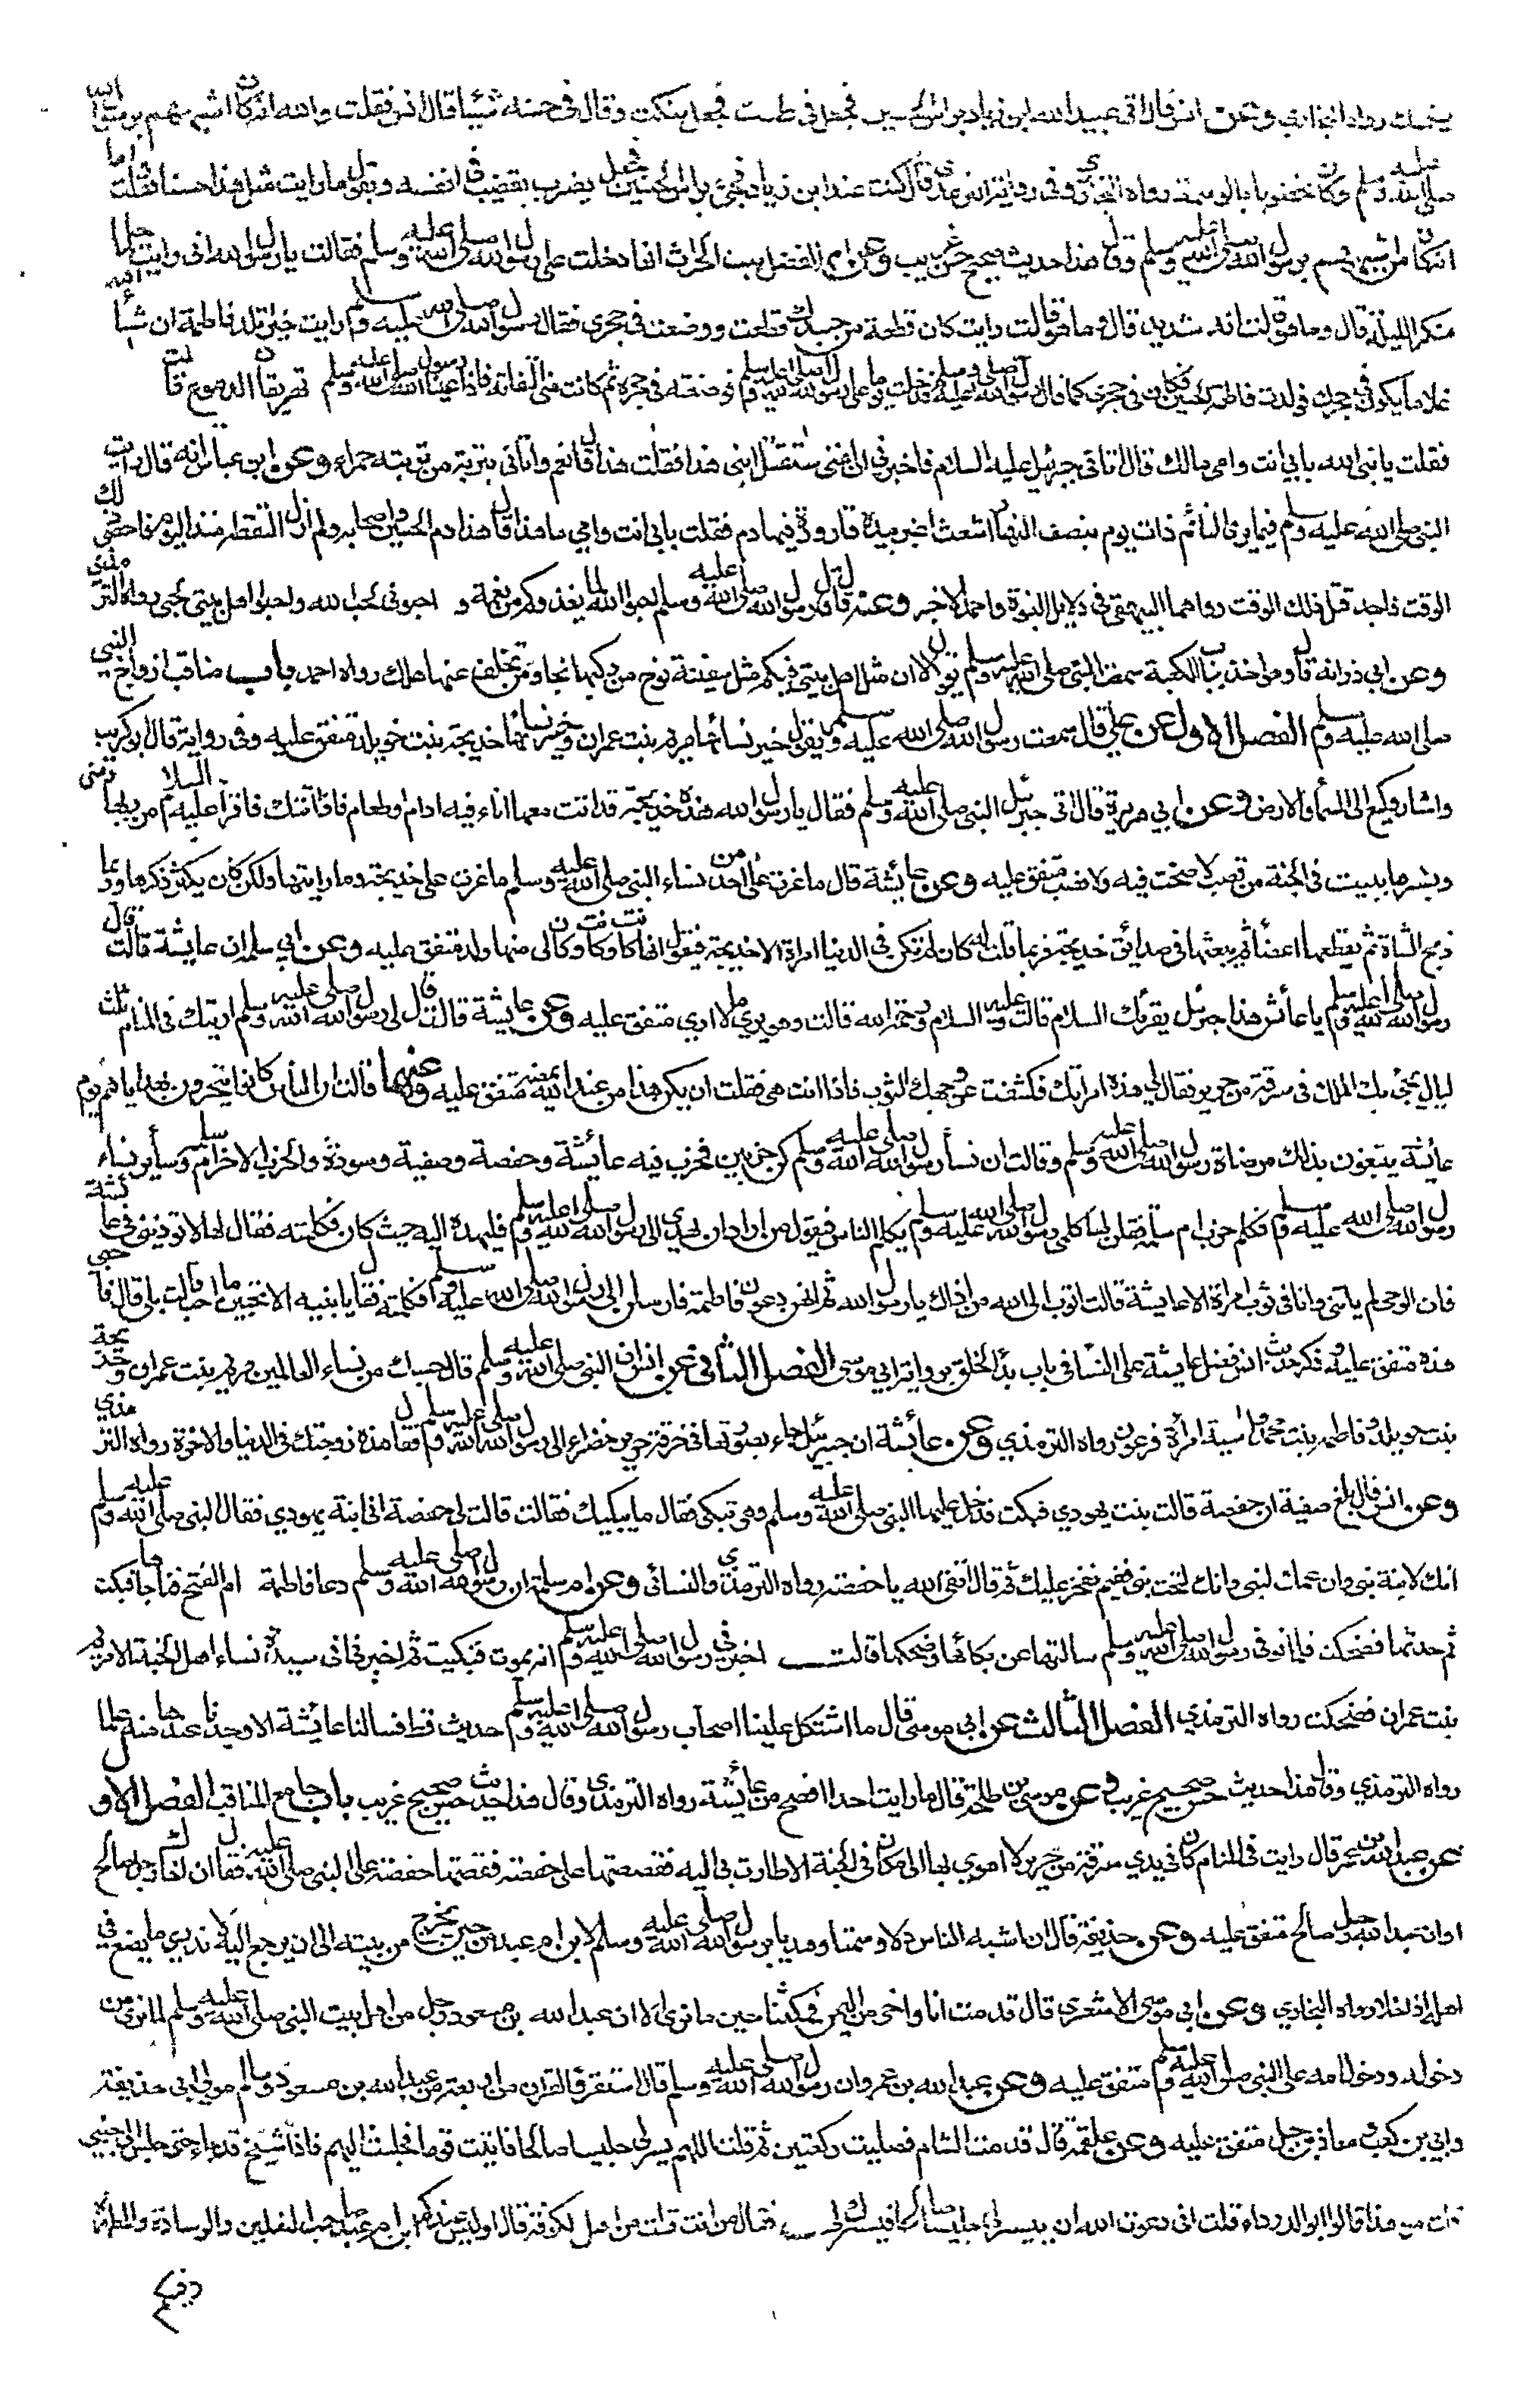 يضحك رواه البخاري وعن انس قال اتي عبيد الله ابن زياد براس الحسين فجعل في طست فجعل ينكت وقال في حسنه شيئا قال انس فقلت والله انه كان اشبههم برسول الله
صلى الله عليه وسلم وكان مخضوبا بالوسمة رواه البخاري وفي رواية الترمذي قال كنت عند ابن زياد فجئ براس الحسين فجعل يضرب بقضيب في انفه ويقول ما رايت مثل هذا حسنا فقلت اما
انه كان من اشبههم برسول الله صلى الله عليه وسلم وقال هذا حديث صحيح حسن غريب وعن ام الفضل بنت الحرث انها دخلت على رسول الله صلى الله عليه وسلم فقالت يا رسول الله اني رايت حلما
منكرا الليلة قال وما هو قالت انه شديد قال وما هو قالت رايت كان قطعة من جسدك قطعت ووضعت في حجري فقال رسول الله صلى الله عليه وسلم رايت خيرا تلد فاطمة ان شأ الله
غلاما يكون في حجرك فولدت فاطمة الحسين فكان في حجري كما قال رسول الله صلى الله عليه وسلم فدخلت يوما على رسول الله صلى الله عليه وسلم فوضعته في حجره ثم كانت مني التفاتة فاذا عينا رسول الله صلى الله عليه وسلم تهريقان الدموع قالت
فقلت يا نبي الله بابي انت وامي مالك قال اتاني جبرئيل عليه السلام فاخبرني ان امتي ستقتل ابني هذا فقلت هذا قال نعم واتاني بتربة من تربته حمراء وعن ابن عباس انه قال رايت
النبي صلى الله عليه وسلم فيما يرى النائم ذات يوم بنصف النهار اشعث اغبر بيده قارورة فيها دم فقلت بابي انت وامي ما هذا قال هذا دم الحسين واصحابه ولم ازل التقطه منذ اليوم فاحصي ذلك
الوقت فاجد قتل ذلك الوقت رواهما البيهقي في دلايل النبوة واحمد الاخير وعنه قال قال رسول الله صلى الله عليه وسلم احبوا الله لما يغذوكم من نعمة و احبوني لحب الله واحبوا اهل بيتي لحبي رواه الترمذي
وعن ابي ذر انه قال وهو اخذ بباب الكعبة سمعت النبي صلى الله عليه وسلم يقول الا ان مثل اهل بيتي فيكم مثل سفينة نوح من ركبها نجا ومن تخلف عنها هلك رواه احمد باب مناقب ازواج النبي
صلى الله عليه وسلم الفصل الاول عن علي قال سمعت رسول الله صلى الله عليه وسلم يقول خير نسائها مريم بنت عمران وخير نسائها خديجة بنت خويلد متفق عليه وفي رواية قال ابو كريب
واشار وكيع الى السمأ والارض وعن ابي هريرة قال اتى جبرئيل النبي صلى الله عليه وسلم فقال يا رسول الله هذه خديجة قد اتت معها اناء فيه ادام وطعام فاذا اتتك فاقرأ عليها السلام من ربها ومني
وبشرها ببيت في الجنة من قصب لا صخب فيه ولا نصب متفق عليه وعن عايشة قال ما غرت على احد من نساء النبي صلى الله عليه وسلم ما غرت على خديجة وما رايتها ولكن كان يكثر ذكرها وربما
ذبح الشاة ثم يقطعها اعضأ ثم يبعثها في صدائق خديجة فربما قلت له كان لم تكن في الدنيا امراة الا خديجة فيقول انها كانت وكانت وكان لي منها ولد متفق عليه وعن ابي سلمة ان عايشة قالت قال
رسول الله صلى الله عليه وسلم يا عائش هذا جبرئيل يقرئك السلام قالت وعليه السلام ورحمة الله قالت وهو يرى ما لا ارى متفق عليه وعن عايشة قالت قال لي رسول الله صلى الله عليه وسلم اريتك في المنام ثلث
ليال يجئ بك الملك في سرقة من حرير فقال لي هذه امراتك فكشفت عن وجهك الثوب فاذا انت هي فقلت ان يكن هذا من عند الله يمضه متفق عليه وعنها قالت ان الناس كانوا يتحرون بهداياهم يوم
عائشة يبتغون بذلك مرضاة رسول الله صلى الله عليه وسلم وقالت ان نسأ رسول الله صلى الله عليه وسلم كن حزبين فحزب فيه عائشة وحفصة وصفية وسودة والحزب الاخر ام سلمة وسأير نساء
رسول الله صلى الله عليه وسلم فكلم حزب ام سلمة فقلن لها كلمي رسول الله صلى الله عليه وسلم يكلم الناس فيقول من اراد ان يهدي الى رسول الله صلى الله عليه وسلم فليهده اليه حيث كان فكلمته فقال لها لا توذيني في عائشة
فان الوحي لم ياتني وانا في ثوب امراة الا عايشة قالت اتوب الى الله من اذاك يا رسول الله ثم انهن دعون فاطمة فارسلن الى رسول الله صلى الله عليه وسلم فكلمته فقال يا بنية الا تحبين ما احب قالت بلى قال فاحبي
هذه متفق عليه وذكر حديث انس فضل عايشة على النسأ في باب بدأ الخلق برواية ابي موسى الفصل الثاني عن انس ان النبي صلى الله عليه وسلم قال حسبك من نساء العالمين مريم بنت عمران وخديجة
بنت خويلد وفاطمة بنت محمد واسية امرأة فرعون رواه الترمذي وعن عائشة ان جبرئيل جاء بصورتها في خرقة حرير خضراء الى رسول الله صلى الله عليه وسلم فقال هذه زوجتك في الدنيا والاخرة رواه الترمذي
وعن انس قال بلغ صفية ان حفصة قالت بنت يهودي فبكت فدخل عليها النبي صلى الله عليه وسلم وهي تبكي فقال ما يبكيك فقالت قالت لي حفصة اني ابنة يهودي فقال النبي صلى الله عليه وسلم
انك لابنة نبي وان عمك لنبي وانك لتحت نبي ففيم تفخر عليك ثم قال اتقي الله يا حفصة رواه الترمذي والنسائي وعن ام سلمة ان رسول الله صلى الله عليه وسلم دعا فاطمة ام الفتح فناجاها فبكت
ثم حدثها فضحكت فلما توفي رسول الله صلى الله عليه وسلم سالتها عن بكائها وضحكها قالت اخبرني رسول الله صلى الله عليه وسلم انه يموت فبكيت ثم اخبرني اني سيدة نساء اهل الجنة الا مريم
بنت عمران فضحكت رواه الترمذي الفصل الثالث عن ابي موسى قال ما اشتكل علينا اصحاب رسول الله صلى الله عليه وسلم حديث قط فسالنا عائشة الا وجدنا عندها منه علما
رواه الترمذي وقال هذا حديث حسن صحيح غريب وعن موسى بن طلحة قال ما رايت احدا افصح من عائشة رواه الترمذي وقال هذا حديث حسن صحيح غريب باب جامع المناقب الفصل الاول
عن عبد الله بن عمر قال رايت في المنام كان في يدي سرقة من حرير لا اهوي بها الى مكان في الجنة الا طارت بي اليه فقصصتها على حفصة فقصتها حفصة على النبي صلى الله عليه فقال ان اخاك رجل صالح
او ان عبد الله رجل صالح متفق عليه وعن حذيفة قال ان اشبه الناس دلا وسمتا وهديا برسول الله صلى الله عليه وسلم لابن ام عبد من حين يخرج من بيته الى ان يرجع اليه لا ندري ما يصنع في
اهله اذا خلا رواه البخاري وعن ابي موسى الاشعري قال قدمت انا واخي من اليمن فمكثنا حين ما نرى الا ان عبد الله بن مسعود رجل من اهل بيت النبي صلى الله عليه وسلم لما نرى من
دخوله ودخول امه على النبي صلى الله عليه وسلم متفق عليه وعن عبد الله بن عمرو ان رسول الله صلى الله عليه وسلم قال استقرؤا القران من اربعة من عبد الله بن مسعود وسالم مولى ابي حذيفة
وابي بن كعب ومعاذ بن جبل متفق عليه وعن علقمة قال قدمت الشام فصليت ركعتين ثم قلت اللهم يسر لي جليسا صالحا فاتيت قوما فجلست اليهم فاذا شيخ قد جاء حتى جلس الى جنبي
قلت من هذا قالوا ابو الدرداء قلت اني دعوت الله ان ييسر لي جليسا صالحا فيسرك لي فقال من انت قلت من اهل الكوفة قال اوليس عندكم ابن ام عبد صاحب النعلين والوسادة والمطهرة
وفيكم